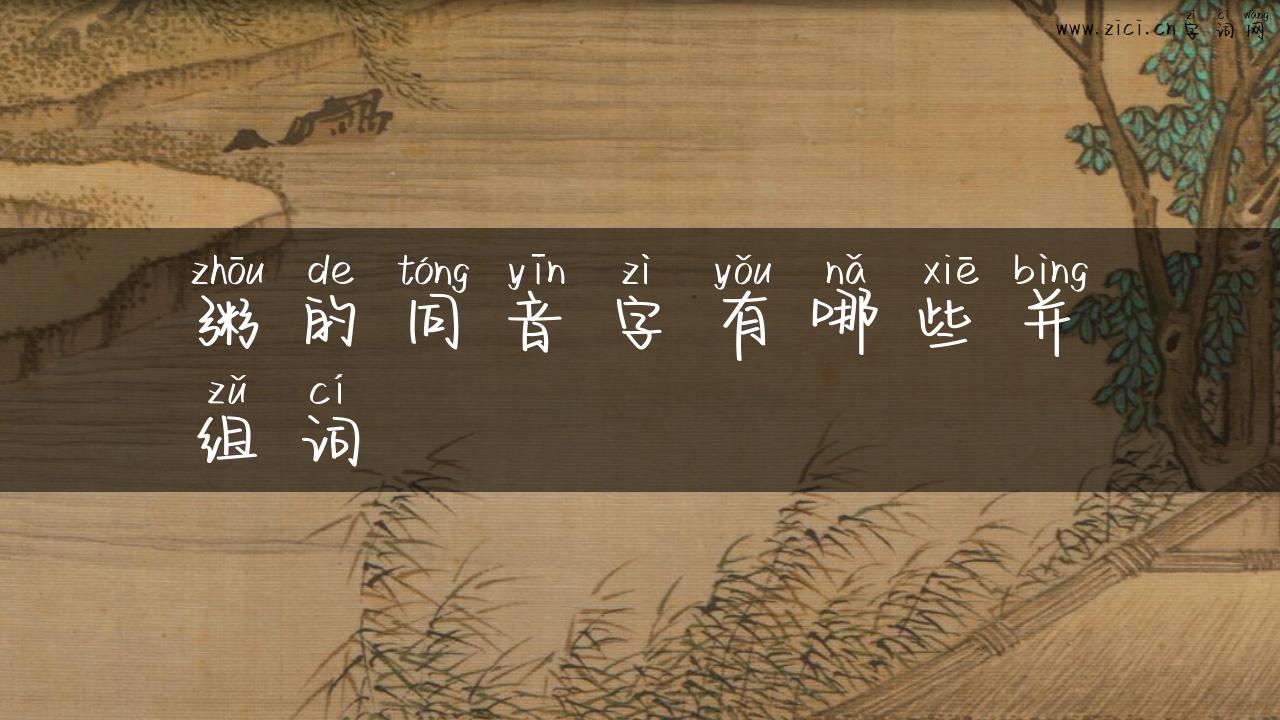 zì cí wǎng
www.zici.cn字词网
zhōu de tóng yīn zì yǒu nǎ xiē bìng
粥的同音字有哪些并
zǔ cí
组词